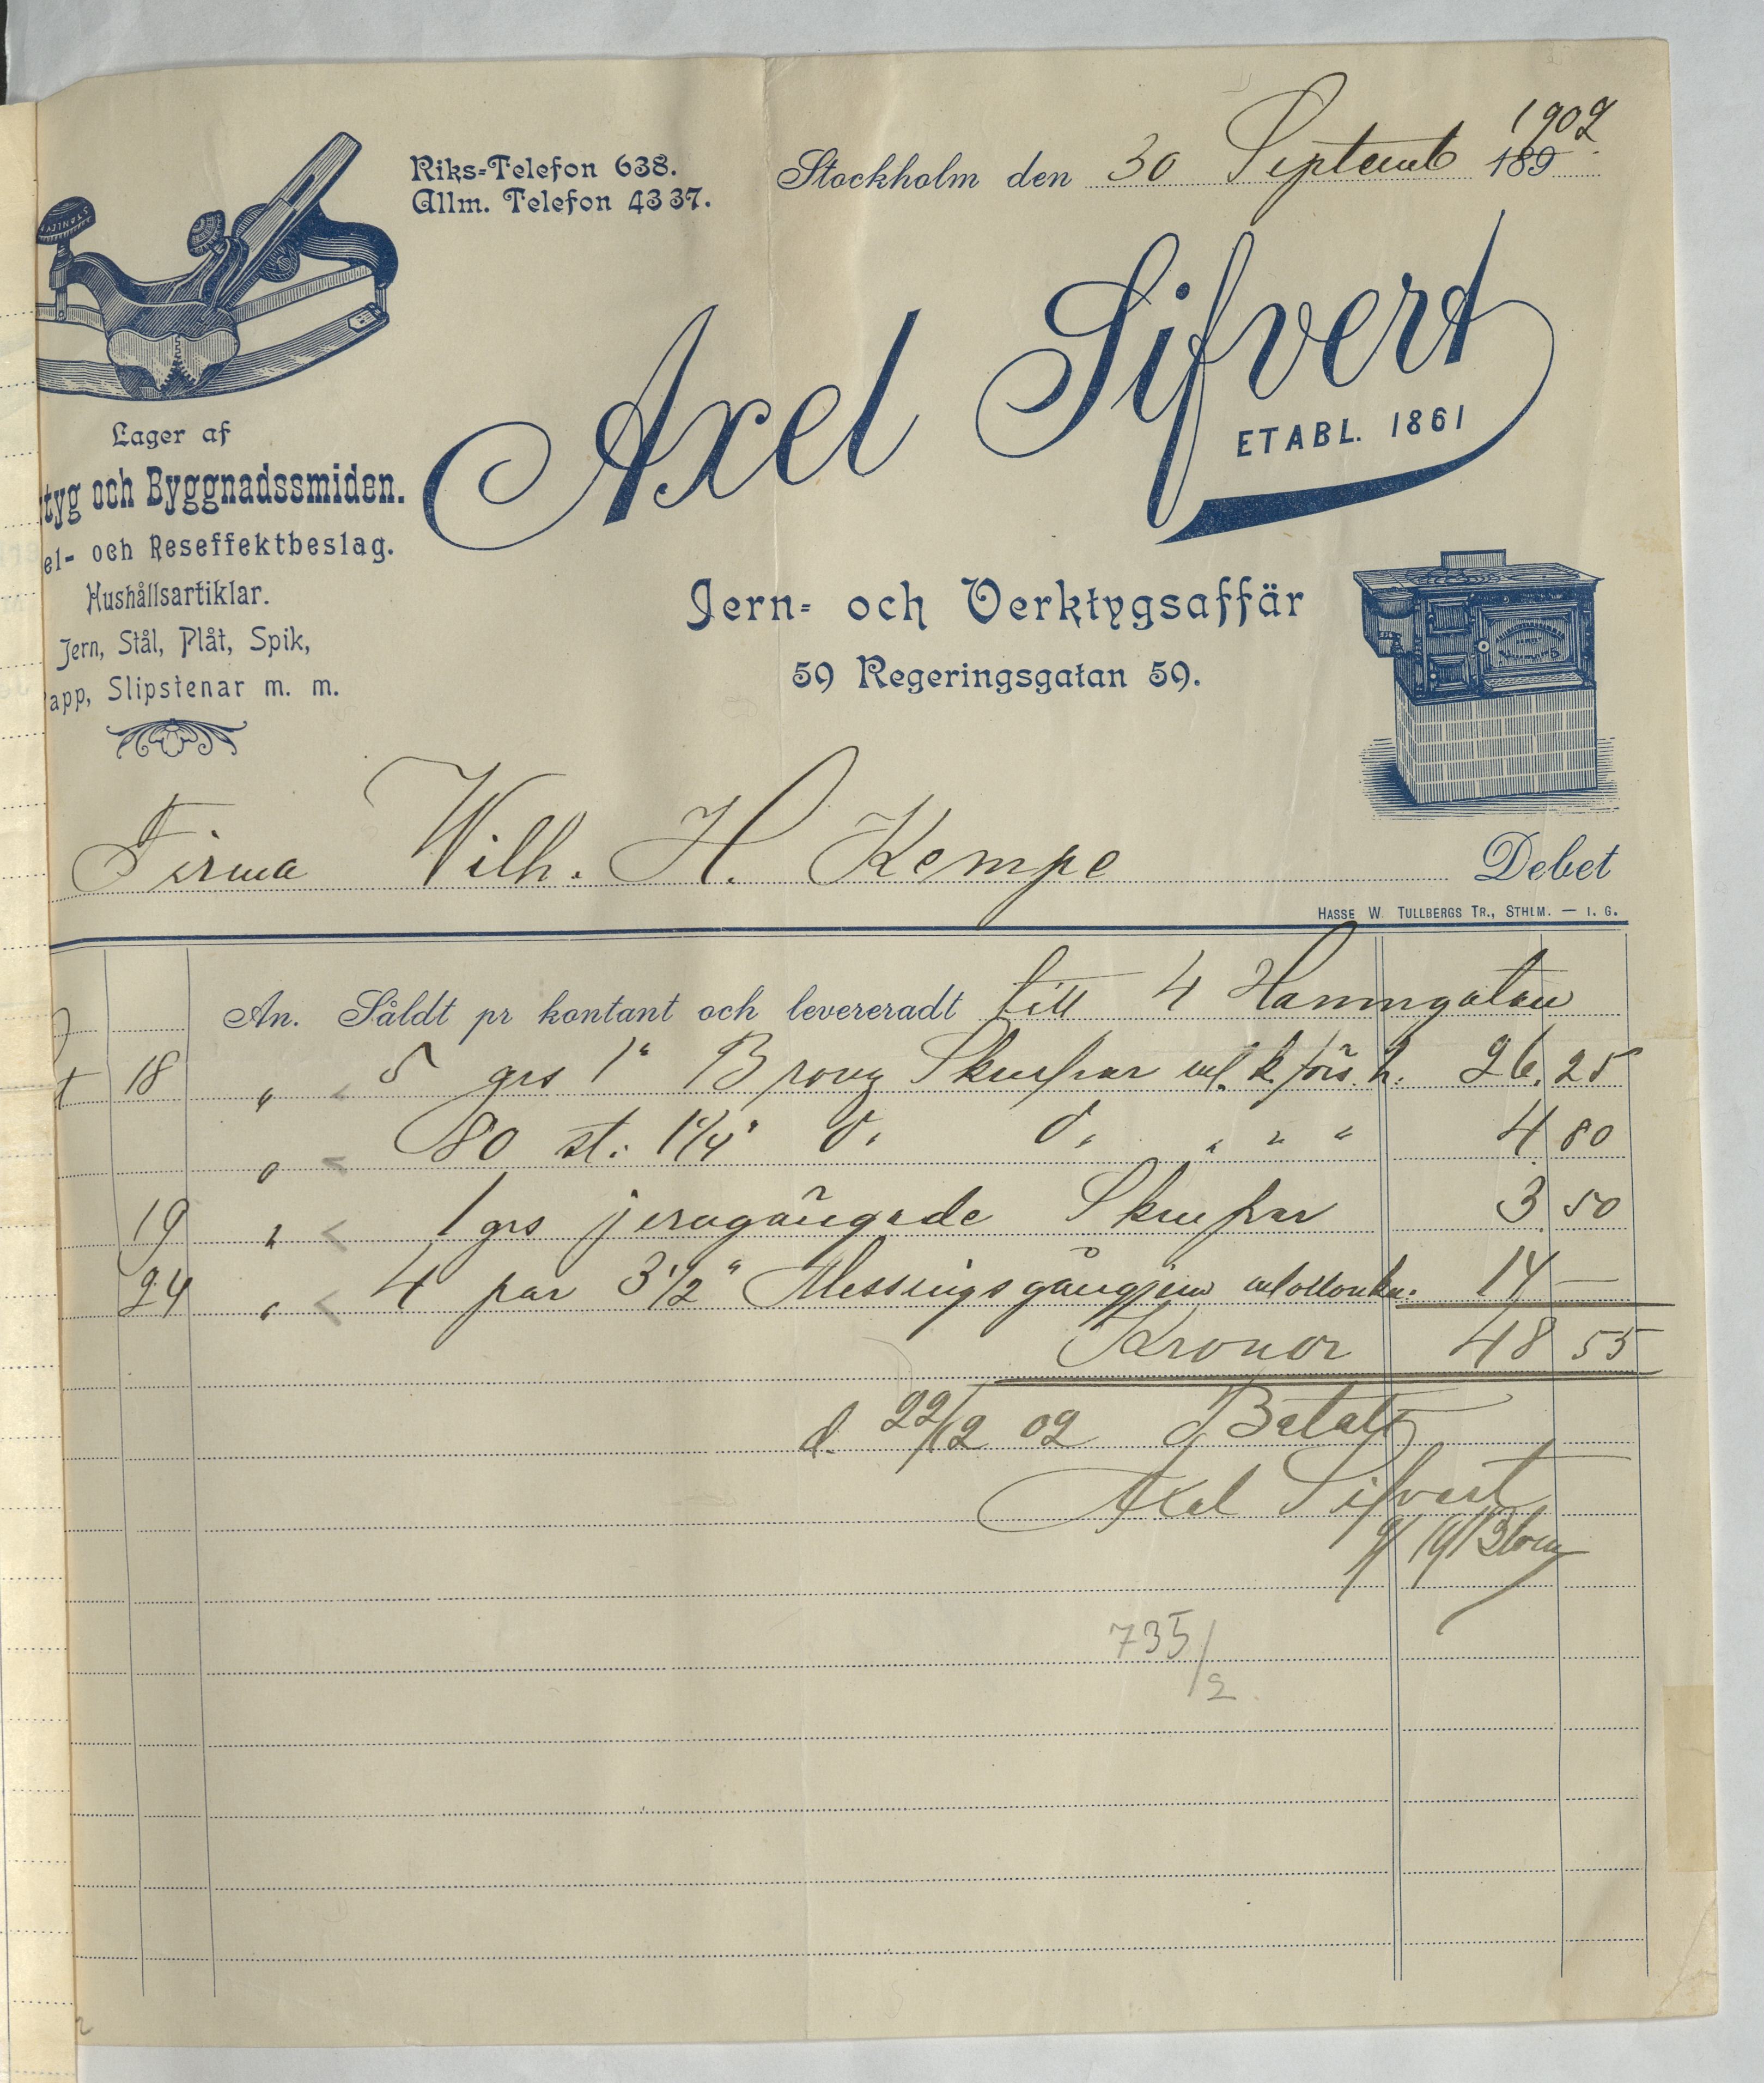 Riks-Telefon 638.
Allm. Telefon 4337.
Stockholm den 30 Septemb 189
1902
STANLEY
Axel Sifvert
ETABL. 1861
Lager af
tyg och Byggnadssmiden.
el- och Reseffektbeslag.
Hushållsartiklar.
Jern, Stål, Plåt, Spik,
app, Slipstenar m. m.
Jern- och Verktygsaffär
59 Regeringsgatan 59.
Firma Wilh. H. Kempe Debet
HASSE W. TULLBERGS TR., STHLM. — I. G.
An. Såldt pr kontant och levereradt till 4 Hamngatan
t 18 " 5 grs 1" Bronz Skrufvar m. k. förs. h. 26. 25
" 80 st: 1 1/4" d. d. " " " 4 80
19 " 1 grs jerngängade Skrufvar 3. 50
24 " 4 par 3 1/2" Messingsgångjern 14 —
Kronor 48 55
d. 22/12 02 Betalt
Axel Sifvert
735/2